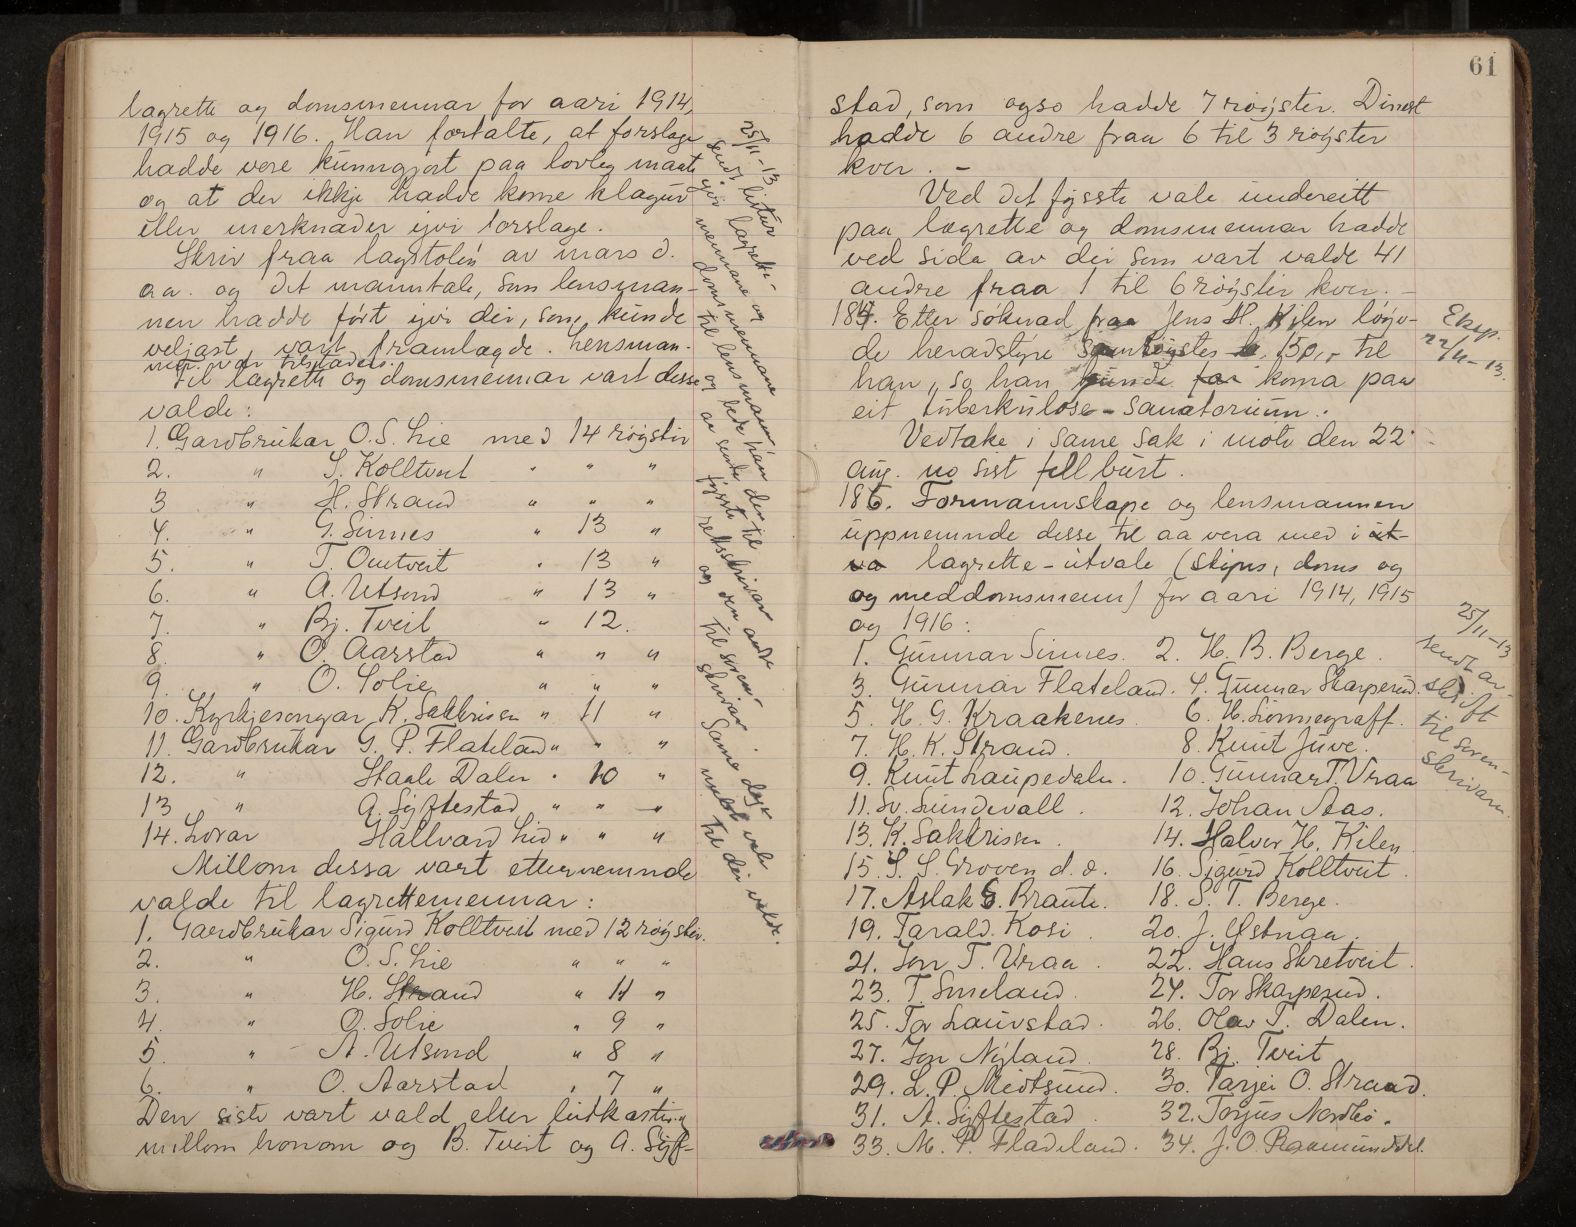 lagrette og domsmennar for aari 1914,
1915 og 1916. Han fortalte, at forslage
hadde vore kunngjort paa lovleg maate
og at der ikkje hadde kome klagur
eller merknader yvi forslage.
Skriv fraa lagstolen av mars d.
aa. og det manntale, som lensman-
nen hadde fört yvi dei, som kunde
veljast, vart framlagde. Lensman-
nen var tilstades.
Til lagrette og domsmennar vart desse
valde:
1. Gardbrukar O. S. Lie med 14 röyster
2. " S. Kolltveit " " "
3 " H. Strand " " "
4. " G. Sinnes " 13 "
5. " T. Omtveit " 13 "
6. " A. Utsond " 13 "
7. " Bj. Tveit " 12.
8. " O. Aarstad " " "
9. " O. Solie " " "
10. Kyrkjesongar K. Sakkrisen " 11 "
11. Gardbrukar G. P. Flateland " " "
12. " Staale Dalen " 10 "
13 " A. Syftestad " " "
14. Lærar Hallvard Lid " " "
Millom dessa vart etternemnde
valde til lagrettemennar:
1. Gardbrukar Sigurd Kolltveit med 12 röyster.
2. " O. S. Lie " " "
3. " H. Strand " 11 "
4. " O. Solie " 9 "
5. " A. Utsond " 8 "
6. " O. Aarstad " 7 "
Den siste vart vald etter lutkasting
millom honom og B. Tveit og A. Syf-
25/11-13
sendt listur
yvi lagrette-
mennane og
domsmennane
til lensmann
og bede han
aa sende dei til
fyrste rettsskrivar
og den andre
til soren-
skrivar.
Same dag
meldt vale
til dei valde.
61
stad, som ogso hadde 7 röyster. Dinest
hadde 6 andre fraa 6 til 3 röyster
kver. -
Ved det fysste vale undereitt
paa lagrette og domsmennar hadde
ved sida av dei som vart valde 41
andre fraa 1 til 6 röyster kver. -
184. Etter söknad fraa Jens H. Kilen löyv-
de heradstyre samröystes kr. 150,- til
han, so han kunde faa koma paa
eit tuberkulose-sanatorium.
Vedtake i same sak i möte den 22
aug. no sist fell burt.
Eksp.
22/11-13.
186. Formannskape og lensmannen
uppnemnde desse til aa vera med i ut-
va lagrette-utvale (skjns, doms og
og meddomsmenn) for aari 1914, 1915
og 1916:
25/11-13
sendt av-
skrift
til soren-
skrivaren
1. Gunnar Sinnes. 2. H. B. Berge.
3. Gunnar Flateland. 4. Gunnar Skarperud.
5. H. G. Kraakenes. 6. H. Lönnegraff.
7. H. K. Strand. 8. Knut Juve.
9. Knut Laupedalen. 10. Gunnar T. Vraa
11. Sv. Sundevall. 12. Johan Aas.
13. K. Sakkrisen. 14. Halvor H. Kilen
15. S. S. Groven d. e. 16. Sigurd Kolltveit.
17. Aslak G. Braute. 18. S. T. Berge.
19. Tarald Kosi. 20. J. Østnaa.
21. Jon T. Vraa. 22. Hans Skretveit.
23. T. Smeland. 24. Tor Skarperud.
25. Tor Lauvstad. 26. Olav T. Dalen.
27. Jon Nyland. 28. Bj. Tveit
29. L. P. Midtsund. 30. Tarjei O. Strand.
31. A. Syftestad. 32. Torjus Nordbö.
33. M. P. Fladeland. 34. J. O. Raamunddal.